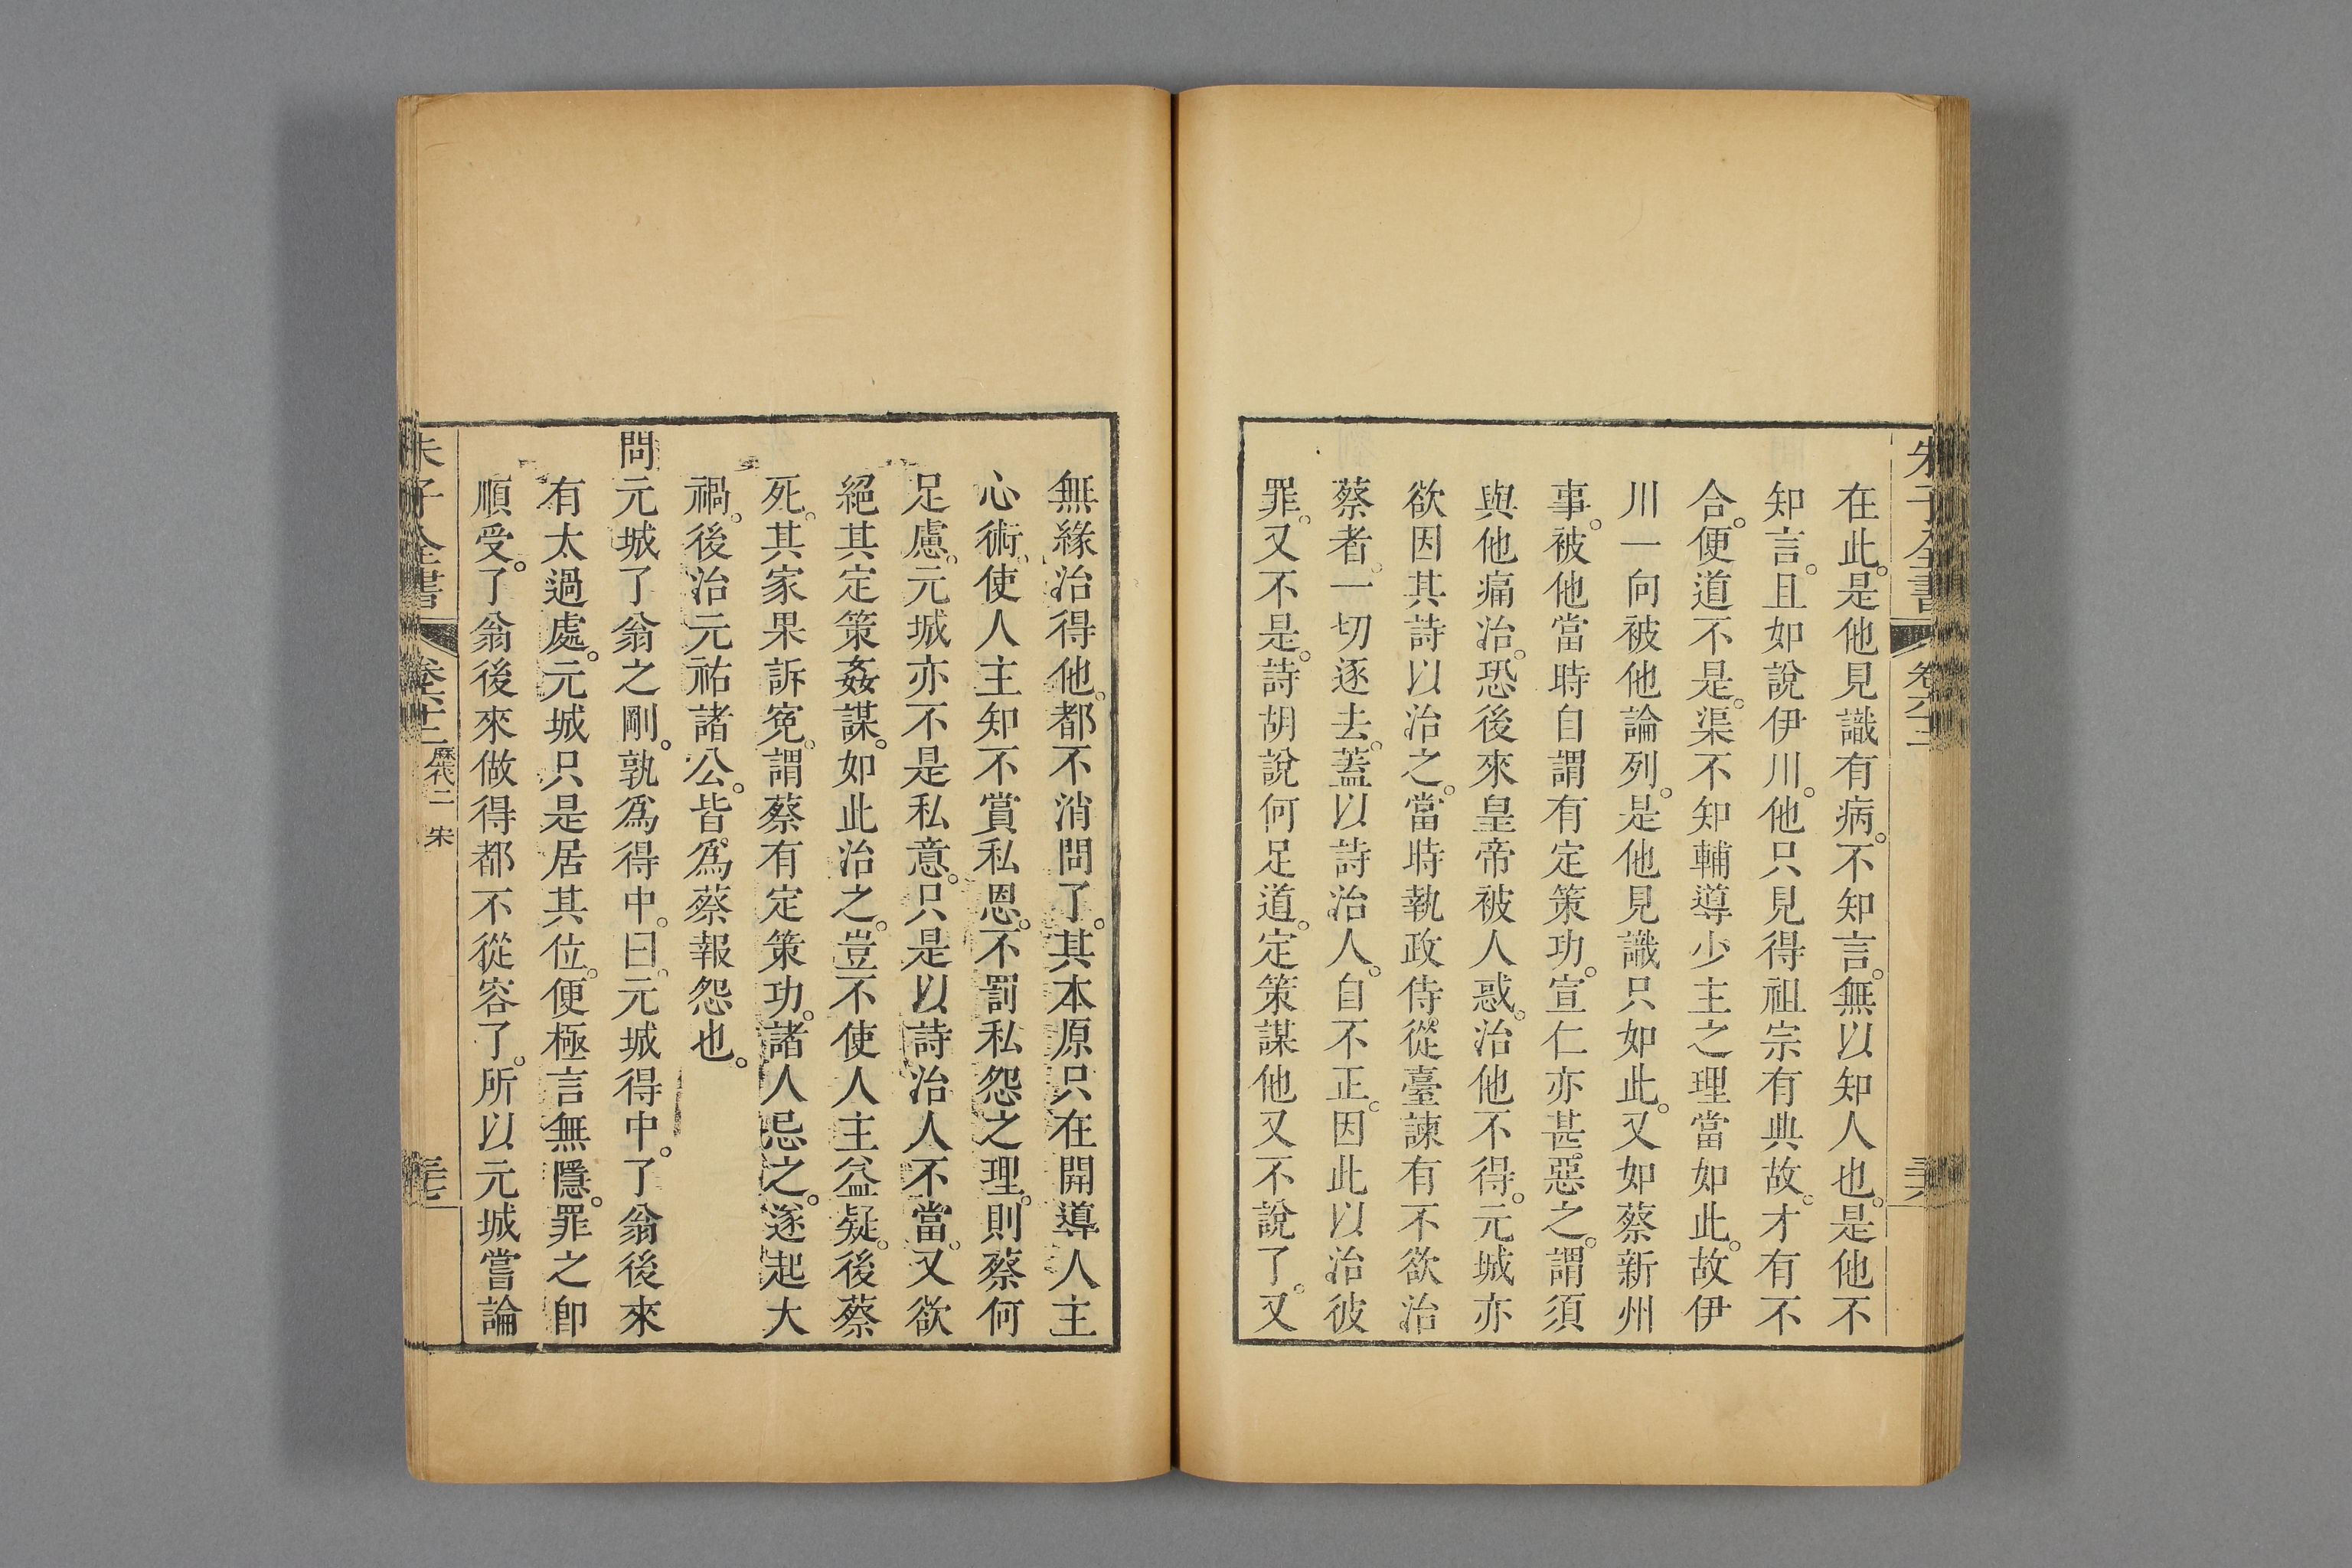 在此。是他見識有病。不知言。無以知人也。是他不
知言。且如說伊川。他只見得祖宗有典故。才有不
合。便道不是。渠不知輔導少主之理當如此。故伊
川一向被他論列。是他見識只如此。又如蔡新州
事。被他當時自謂有定策功。宣仁亦甚惡之。謂須
與他痛治。恐後來皇帝被人惑。治他不得。元城亦
欲因其詩以治之。當時執政侍從臺諫有不欲治
蔡者。一切逐去。蓋以詩治人。自不正。因此以治彼
罪。又不是。詩胡說何足道。定策謀他又不說了。又
無緣治得他。都不消問了。其本原只在開導人主
心術。使人主知不賞私恩。不罰私怨之理。則蔡何
足慮。元城亦不是私意。只是以詩治人不當。又欲
絕其定策姦謀。如此治之。豈不使人主益疑。後蔡
死。其家果訴寃。謂蔡有定策功。諸人忌之。遂起大
禍。後治元祐諸公。皆爲蔡報怨也。
問元城了翁之剛。孰爲得中。曰。元城得中。了翁後來
有太過處。元城只是居其位。便極言無隱。罪之卽
順受。了翁後來做得都不從容了。所以元城嘗論
朱子全書
卷六十二 歷代二 宋